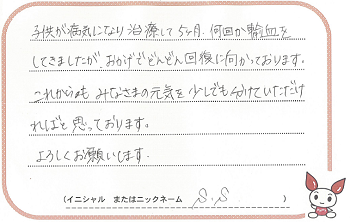 子供が病気になり治療して5ヶ月、何回か輸血を
してきましたが、おかげでどんどん回復に向かっております。
これからも みなさまの元気を少しでも分けていただけ
ればと思っております。
よろしくお願いします.
(イニシャル またはニックネーム S.S )